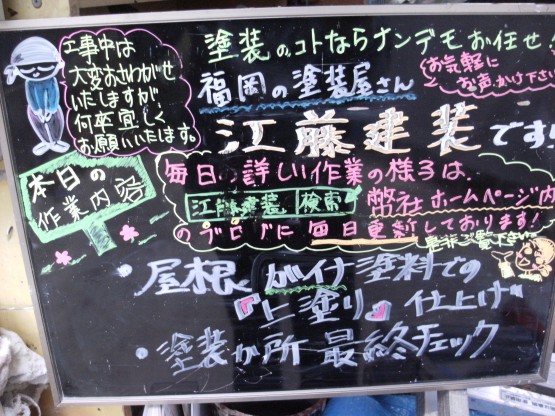 工事中は
大変おさわがせ
いたしますが、
何卒宜しく
お願いいたします。
塗装のコトならナンデモお任せ
お気軽に
お声かけ下さい
福岡の塗装屋さん
江藤建装です
本日の
作業内容
毎日の詳しい作業の様子は、
江藤建装 検索 弊社ホームページ内
のブログに毎日更新しております!
是非ご覧下さい
・屋根 ガイナ塗料での
『上塗り』仕上げ
・塗装か所 最終チェック